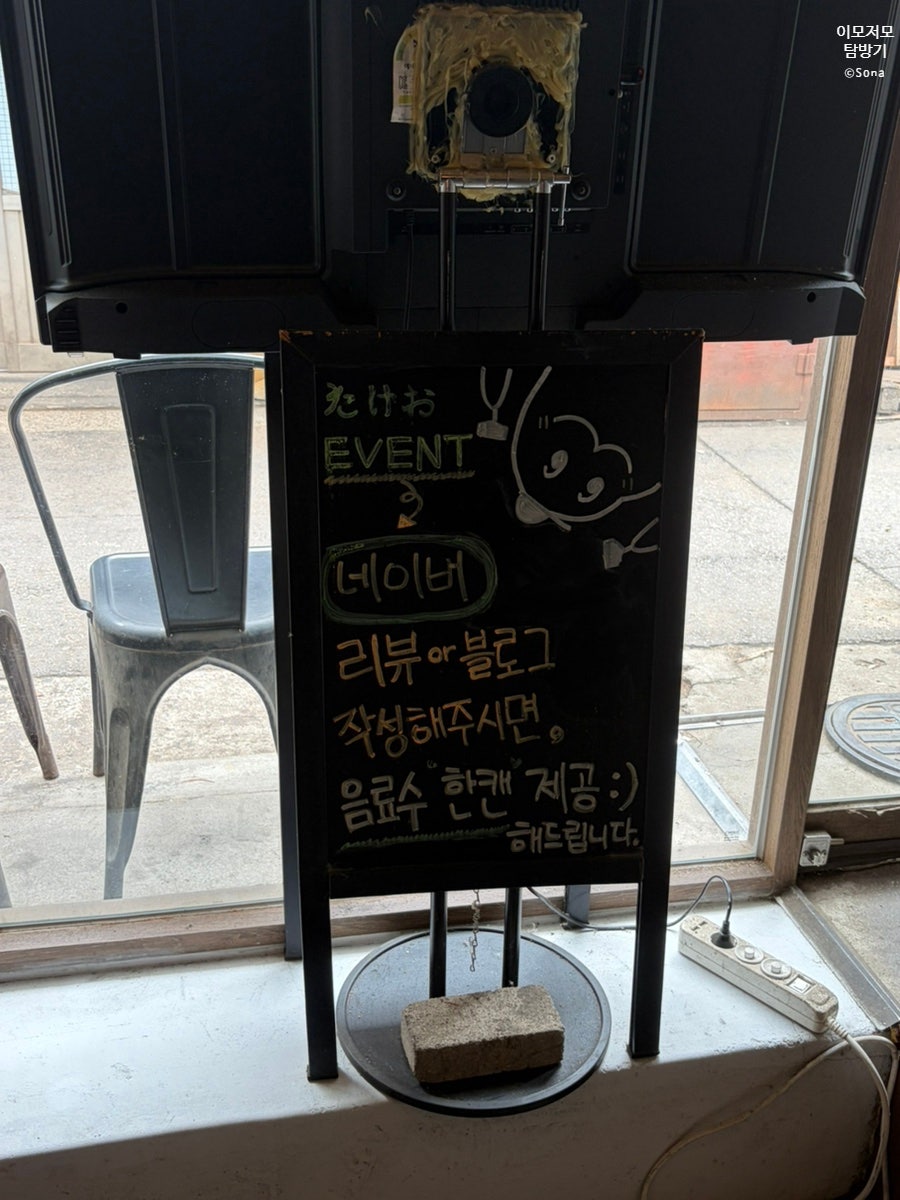 이모저모
탐방기
©Sona
たけお
EVENT
네이버
리뷰 or 블로그
작성해주시면,
음료수 "한캔" 제공 :)
해드립니다.